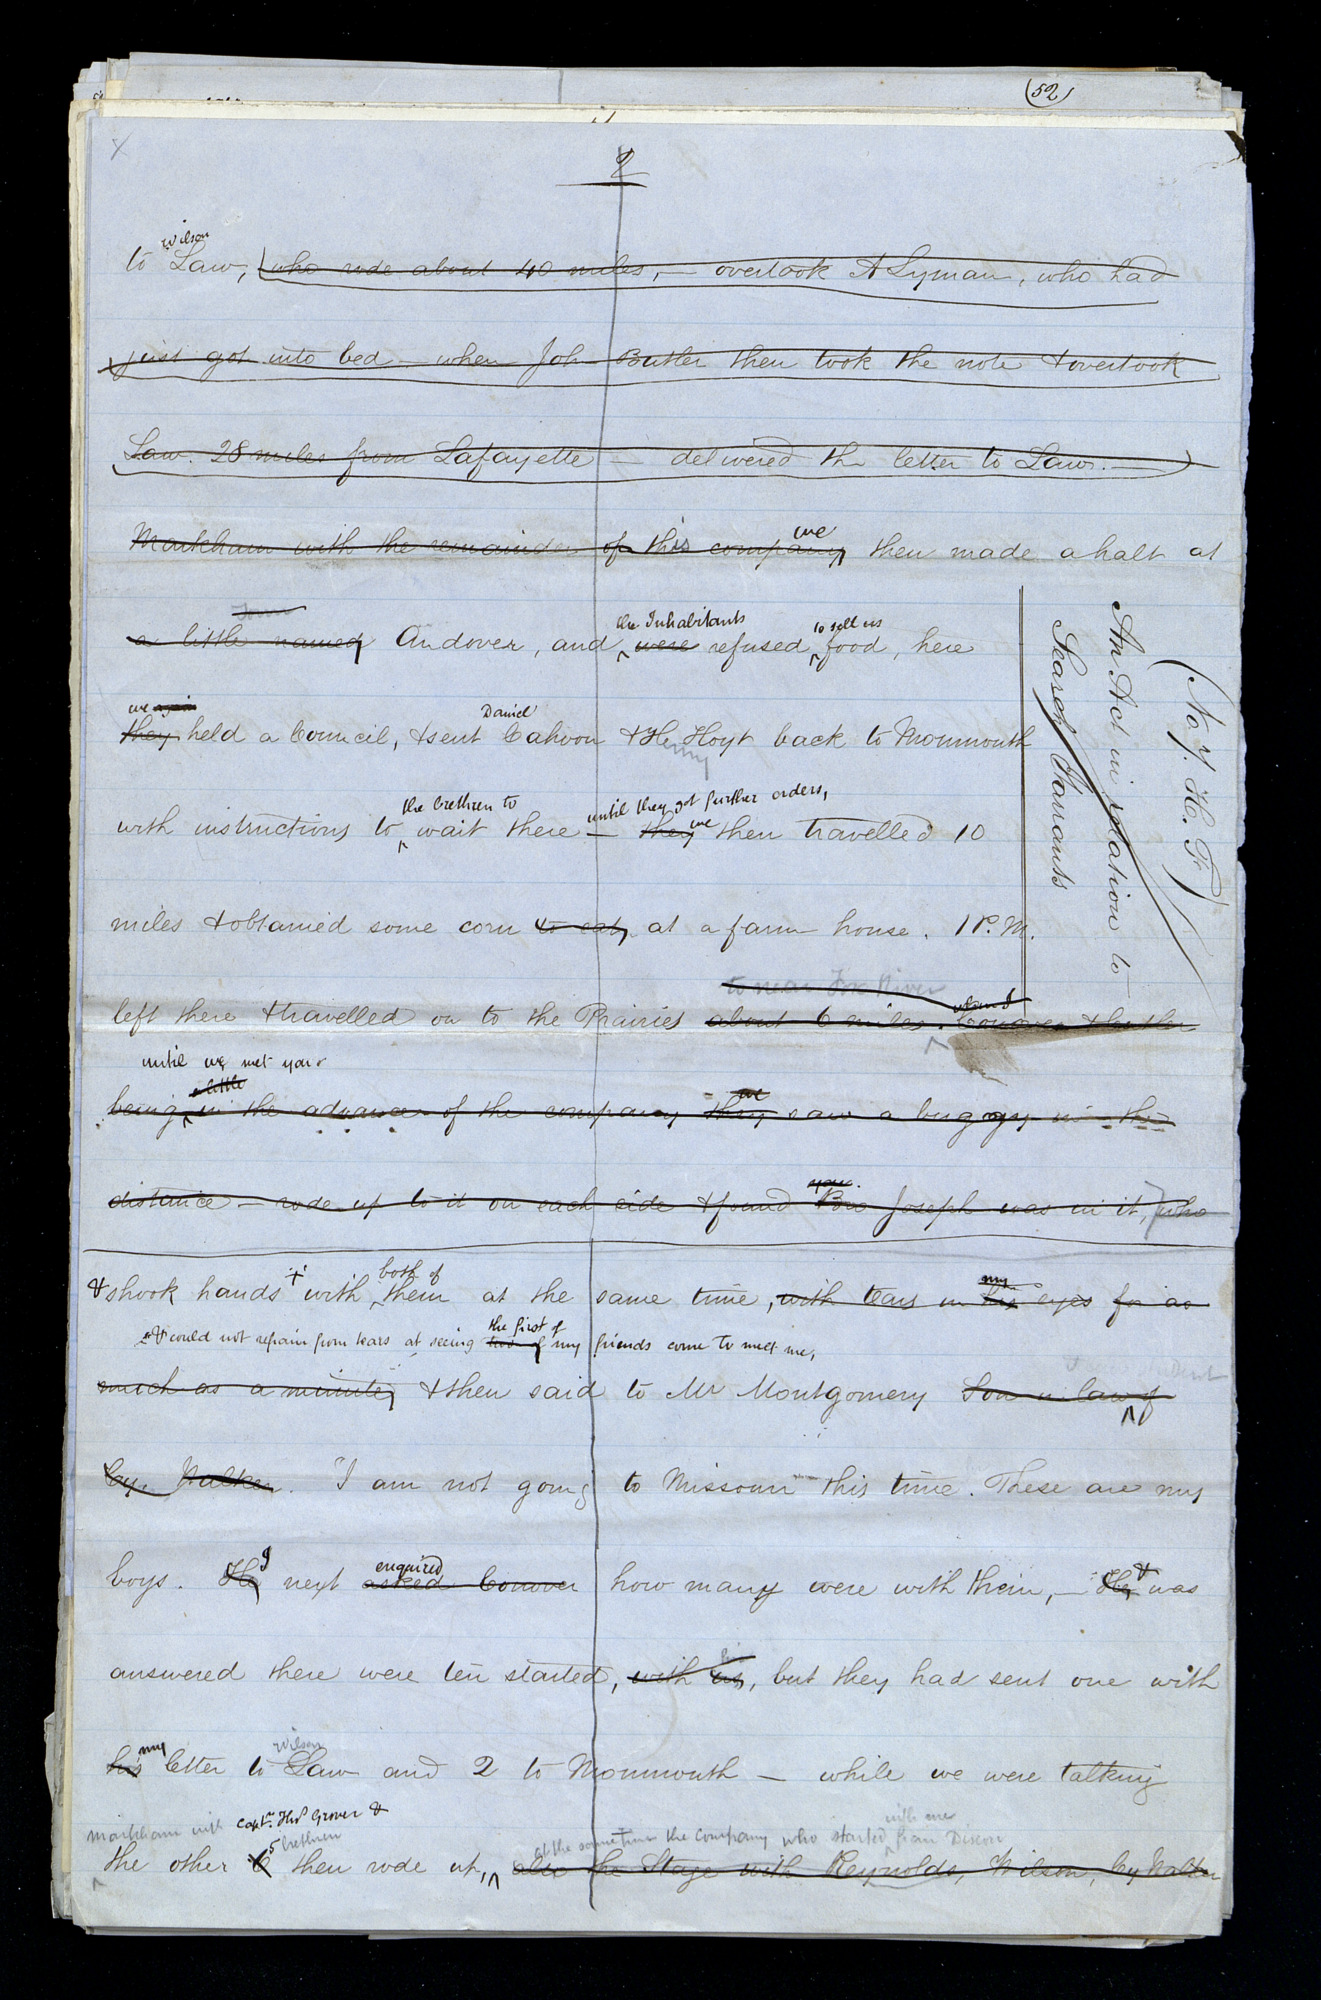 (52)
2
Wilson
to Law, who rode about 40 miles, — overtook A Lyman, who had
just got into bed — when Joh Butler then took the note & overtook
Law. 28 miles from Lafayette — delivered the letter to Law. —
we
Markham with the remainder of this company then made a halt at
Town
the Inhabitants to sell us
a little named Andover, and were refused food, here
we again
Daniel
they held a Council, & sent Cahoon & Henry Hoyt back to Monmouth
the brethren to until they got further orders,
with instructions to wait there — they we then travelled 10
miles & obtained some corn to eat, at a farm house. 1 P.M.
to near Fox River
left there & travelled on to the Prairies about 6 miles. Conover &
until we met your
a little we
being in the advance of the company they saw a buggy in the
your.
distance — rode up to it on each side & found Bro Joseph was in it, who
both of my
& shook hands + with them at the same time, with tears in his eyes for as
+ & could not refrain from tears at seeing two of the first of my friends come to meet me,
much as a minute, & then said to Mr Montgomery Son in law of
Cy. Walker. "I am not going to Missouri this time. These are my
I enquired &
boys. He next asked Conover how many were with them, — He was
answered there were ten started, with us, but they had sent one with
my Wilson
his letter to Law and 2 to Monmouth — while we were talking
Markham with Capt. Thos Grover &
5 brethren at the same time the company who started with me from Dixon
the other 6 then rode up, also the Stage with Reynolds, Wilson, Cy Walker
(No 7. H. Tr)
An Act in relation to
Search Warrants